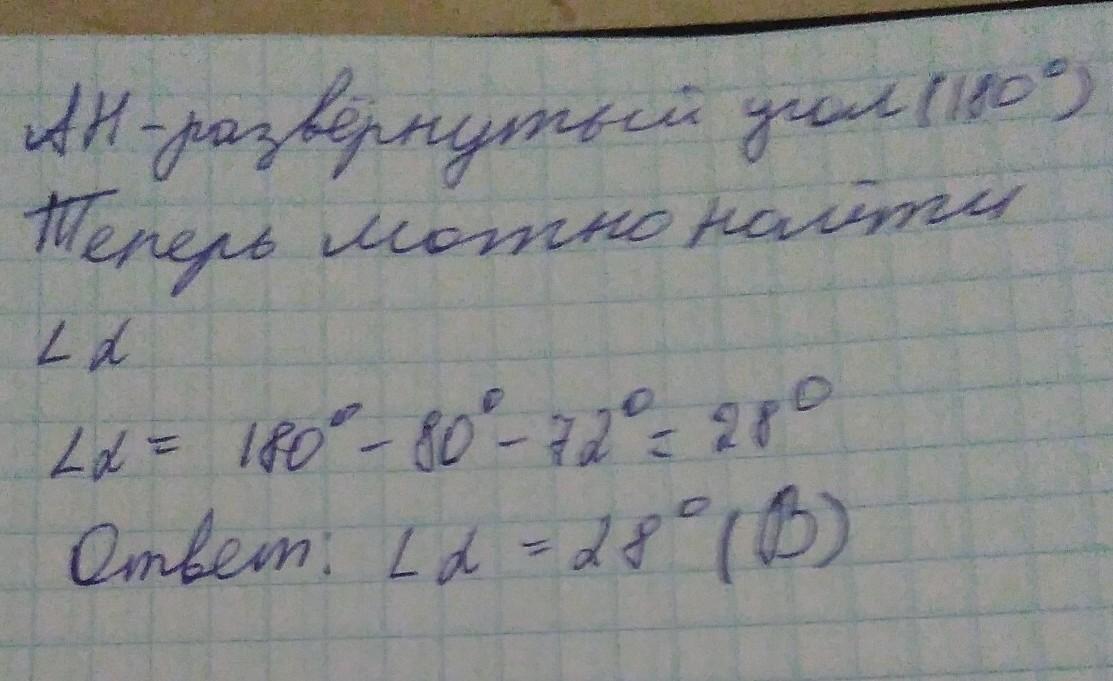 АН-развёрнутый угол (180°)
Теперь можно найти
∠α
∠α = 180° - 80° - 72° = 28°
Ответ: ∠α = 28° (В)